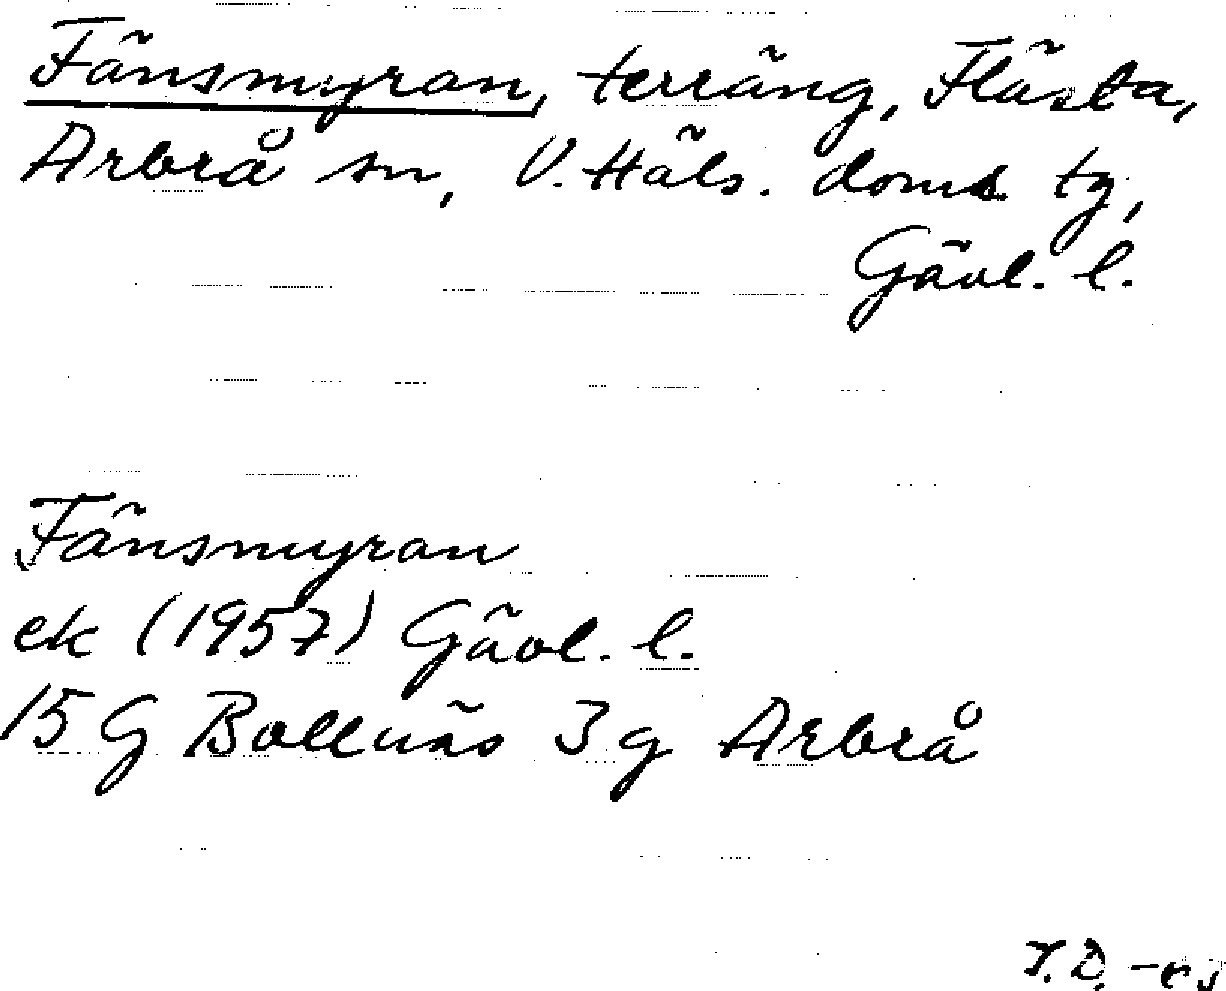 Fänsmyran, terräng, Flästa,
Arbrå sn, V. Häls. doms tg,
Gävl. l.
Fänsmyran
ek (1957) Gävl. l.
15 G Bollnäs 3 g Arbrå